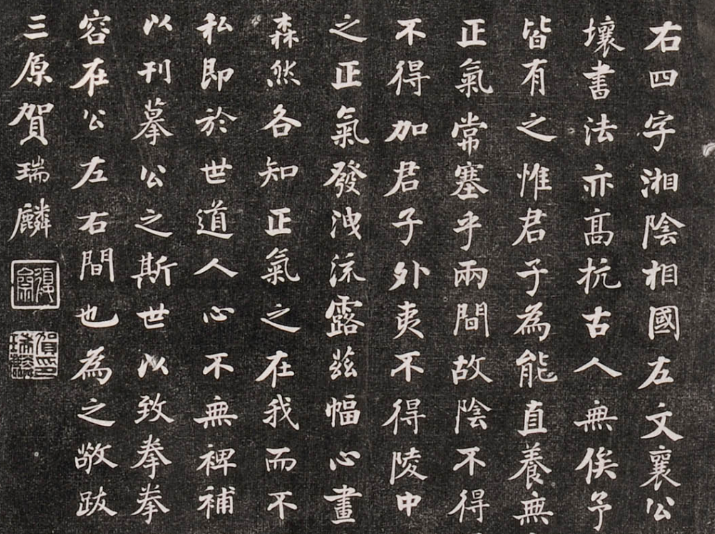 右四字湘陰相國左文襄公
壤書法亦高抗古人無俟予
皆有之惟君子為能直養無
正氣常塞乎兩間故陰不得
不得加君子外夷不得陵中
之正氣發洩流露茲幅心畫
森然各知正氣之在我而不
私即於世道人心不無裨補
以刊摹公之斯世以致拳拳
容在公左右間也為之敬跋
三原賀瑞麟